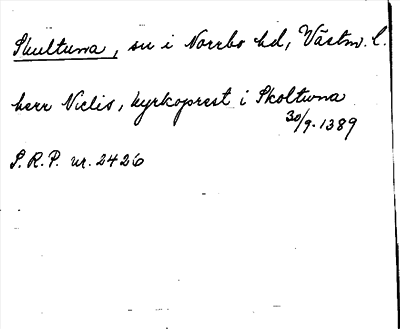 Skultuna, sn i Norrbo hd, Västm. l.
herr Niclis, kyrkoprest i Skoltwna
30/9. 1389
S.R.P. nr. 2426